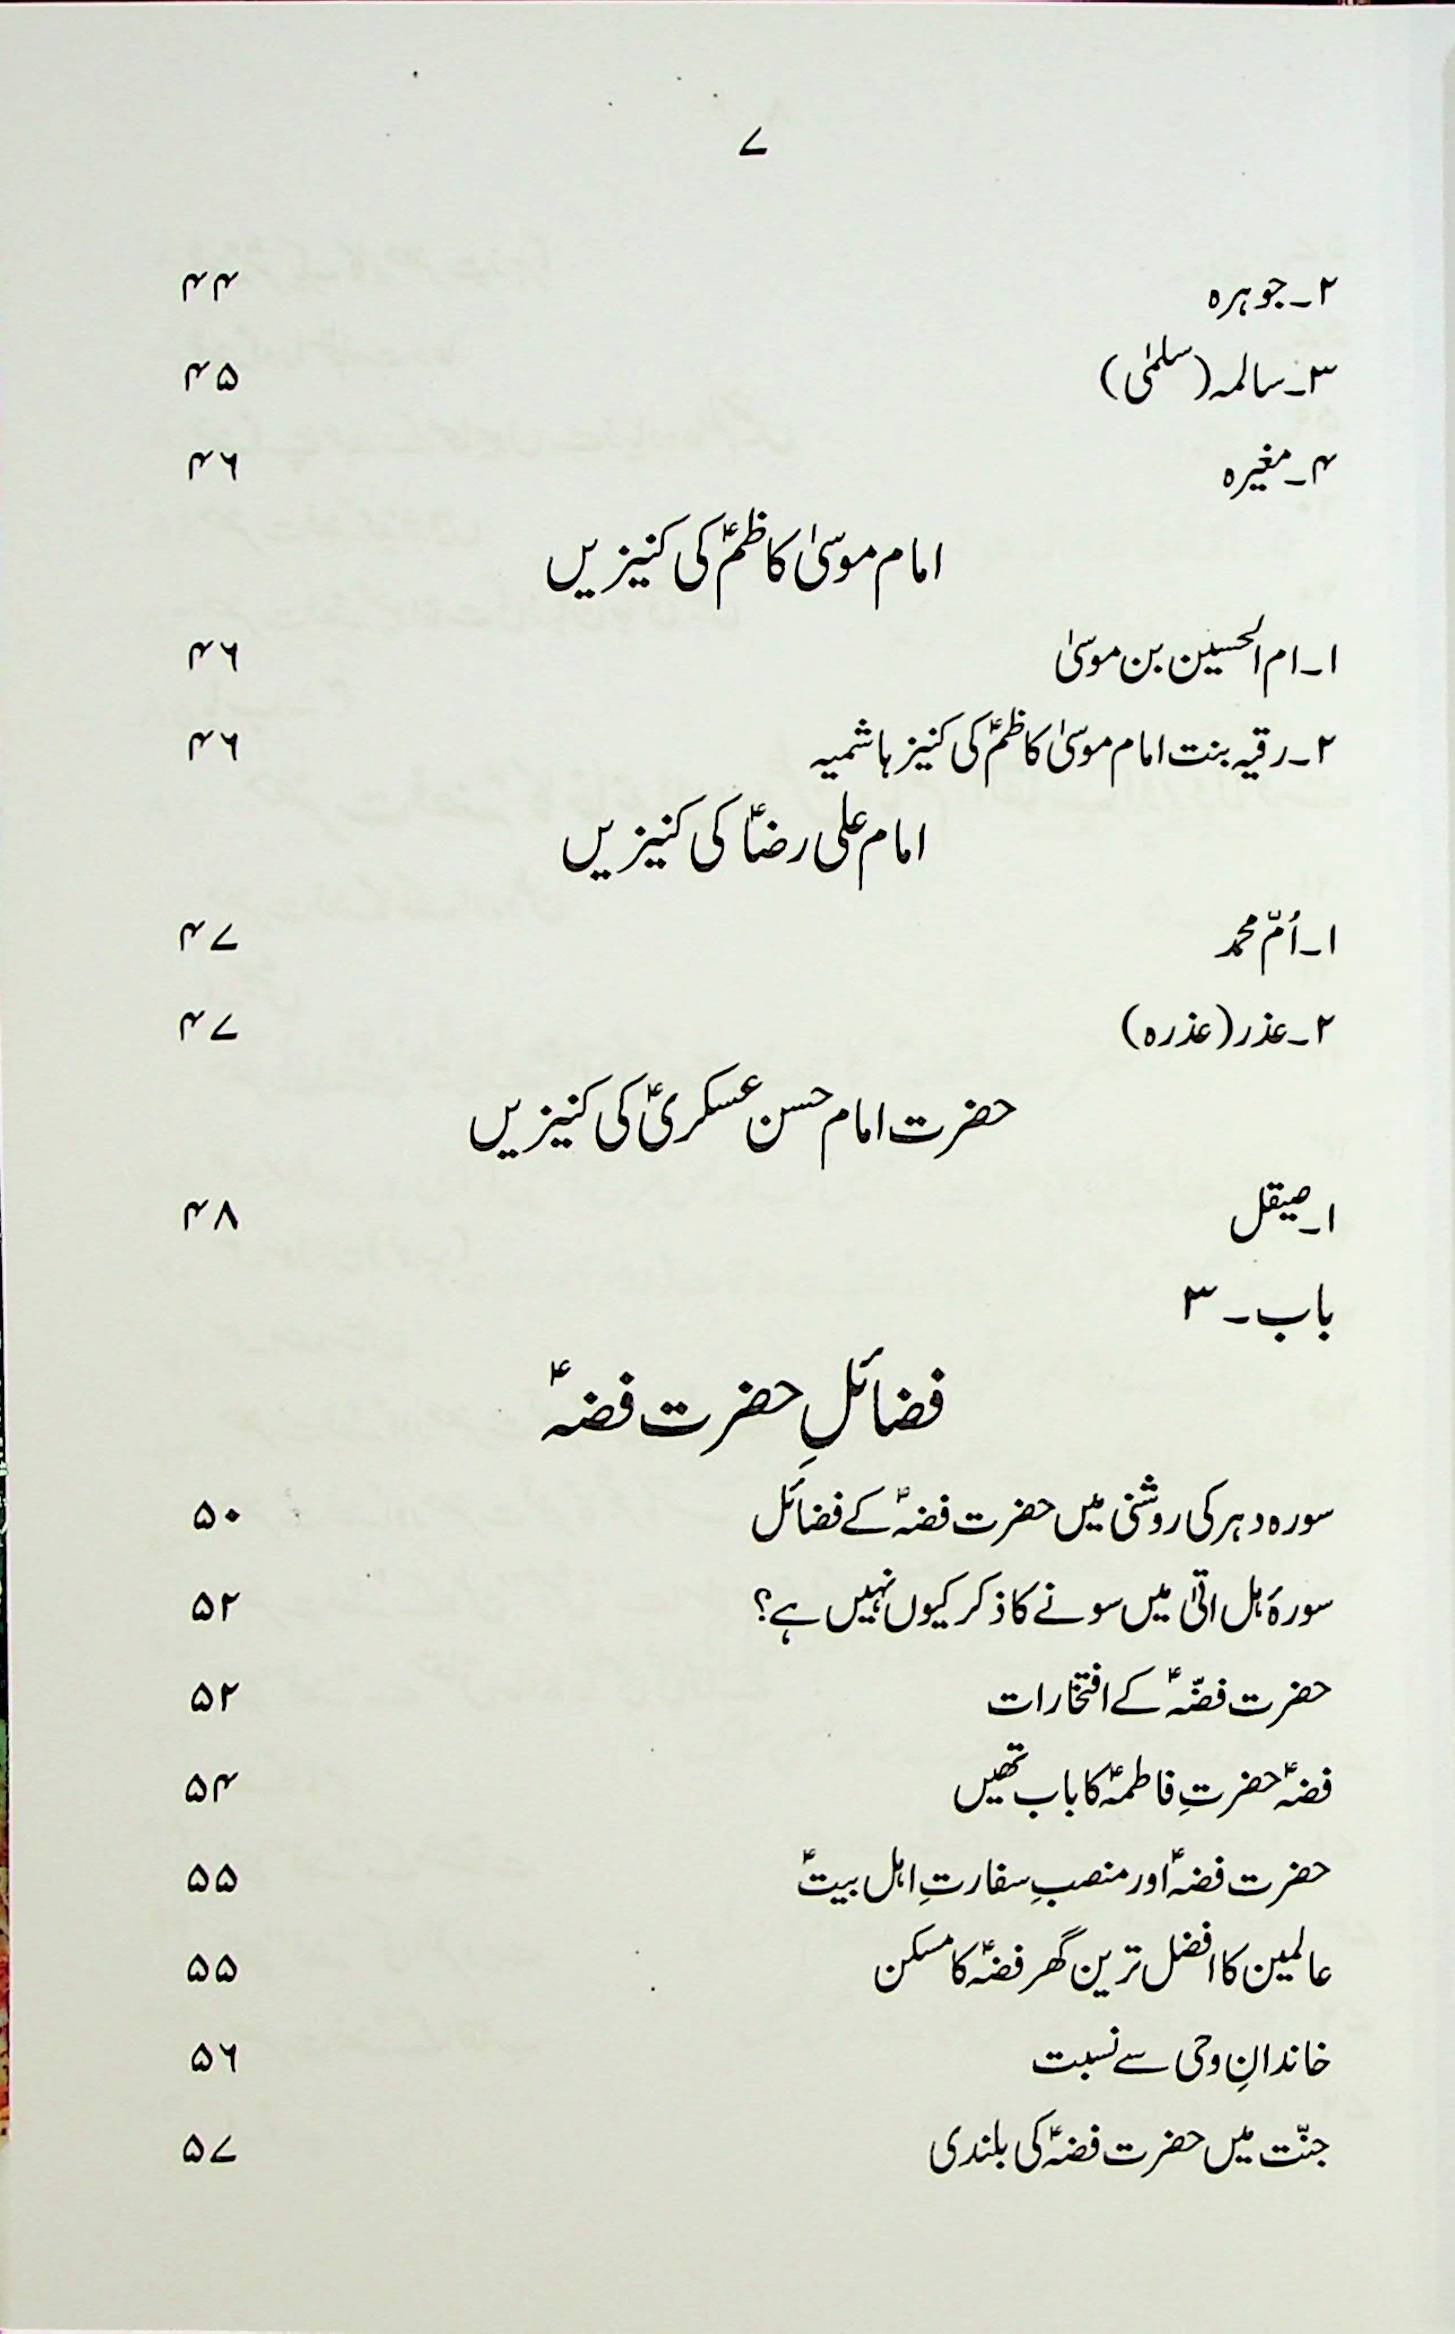 ۷
۲۔جوہرہ ۴۴
۳۔سالمہ(سلمٰی) ۴۵
۴۔مغیرہ ۴۶
امام موسیٰ کاظمؑ کی کنیزیں
۱۔ام الحسین بن موسیٰ ۴۶
۲۔رقیہ بنت امام موسیٰ کاظمؑ کی کنیز ہاشمیہ ۴۶
امام علی رضاؑ کی کنیزیں
۱۔اُمّ محمد ۴۷
۲۔عذر(عذرہ) ۴۷
حضرت امام حسن عسکریؑ کی کنیزیں
۱۔صیقل ۴۸
باب۔۳
فضائلِ حضرت فضہؑ
سورہ دہر کی روشنی میں حضرت فضہؑ کے فضائل ۵۰
سورۂ ہل اتیٰ میں سونے کا ذکر کیوں نہیں ہے؟ ۵۲
حضرت فضّہؑ کے افتخارات ۵۲
فضہؑ حضرتِ فاطمہؑ کا باب تھیں ۵۴
حضرت فضہؑ اور منصبِ سفارتِ اہل بیتؑ ۵۵
عالمین کا افضل ترین گھر فضہؑ کا مسکن ۵۵
خاندانِ وحی سے نسبت ۵۶
جنّت میں حضرت فضہؑ کی بلندی ۵۷